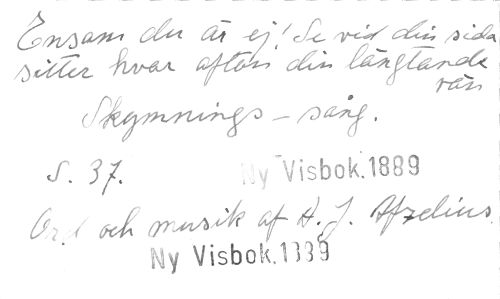 Ensam du är ej! Se vid din sida
sitter hvar afton din längtande
vän
Skymnings-sång.
S. 37.
Ny Visbok. 1889
Ord och musik af A. J. Afzelius.
Ny Visbok. 1889